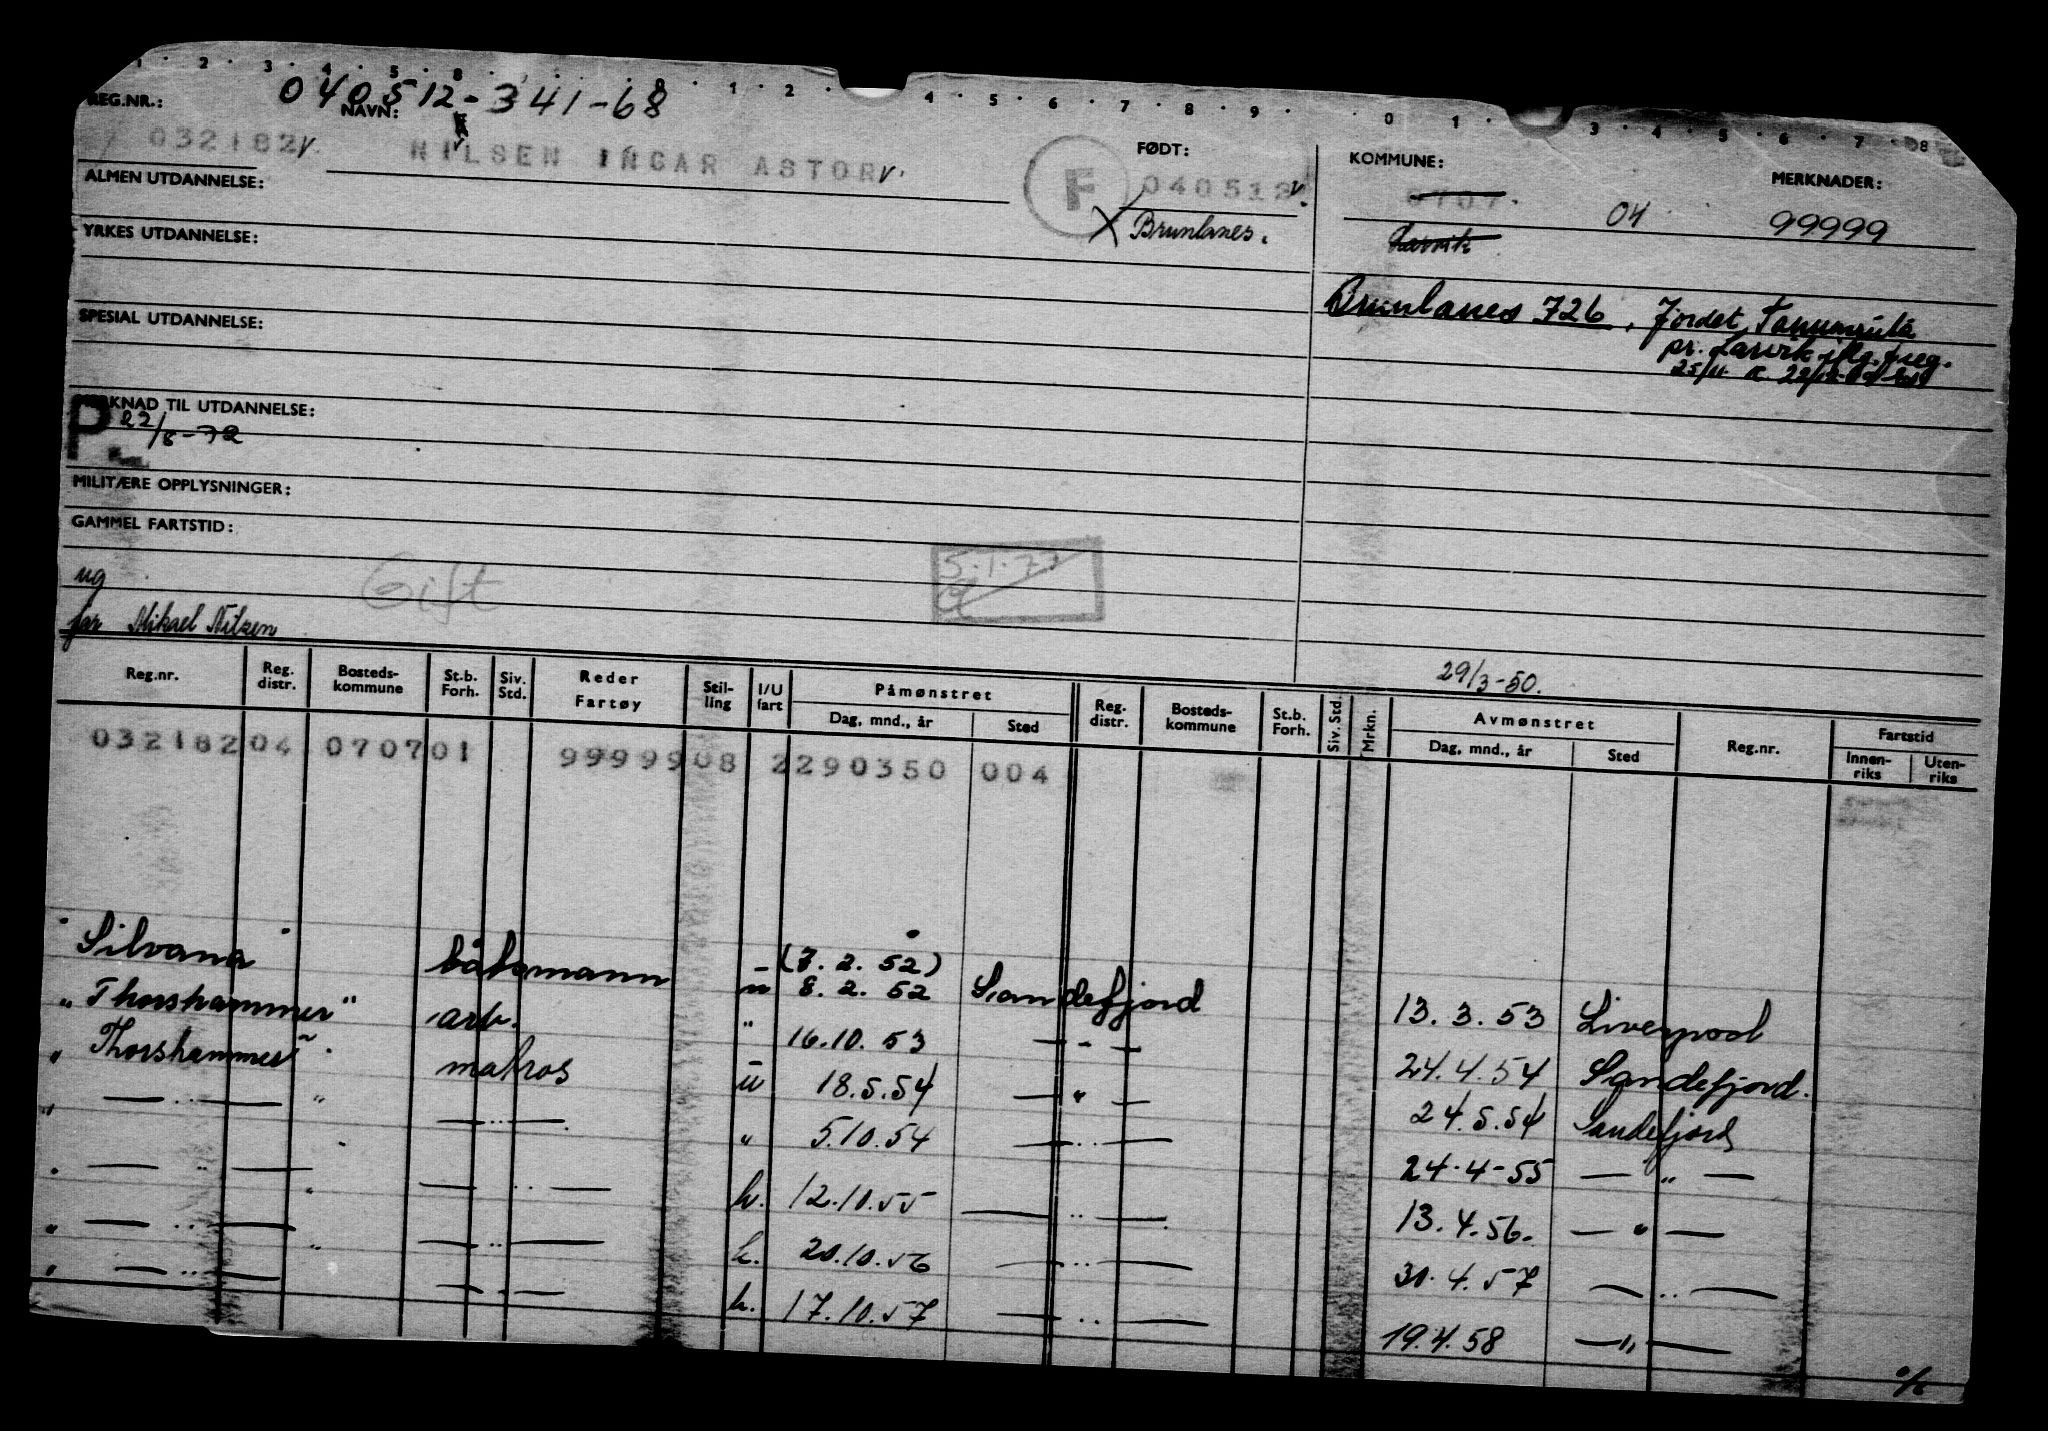 1 · 2 · 3 · 4 · 5 · 8 · 1 · 2 · 4 · 5 · 6 · 7 · 8 · 9 · 0 · 1 · 3 · 4 · 5 · 6 · 7 · 8
040512-341-68
REG.NR.: NAVN: FØDT: KOMMUNE: MERKNADER:
032182 NILSEN INGAR ASTOR F 040512 0707 04 99999
ALMEN UTDANNELSE:
X Brunlanes. Larvik
YRKES UTDANNELSE:
Brunlanes 726, Jordet,
pr. Larvik
SPESIAL UTDANNELSE:
MERKNAD TIL UTDANNELSE:
P 22/8-72
MILITÆRE OPPLYSNINGER:
GAMMEL FARTSTID:
ug Gift 5.1.73
far Mikael Nilsen
29/3-50.
Reg.nr. Reg. distr. Bosteds-kommune St.b. Forh. Siv. Std. Reder Fartøy Stil-ling I/U fart Påmønstret Dag, mnd., år Sted Reg. distr. Bosteds-kommune St.b. Forh. Siv. Std. Mrkn. Avmønstret Dag, mnd., år Sted Reg.nr. Fartstid Innen-riks Uten-riks
032182 04 0707 01 99999 08 2 290350 004
"Silvana" båtsmann u (7.2.52) 8.2.52 Sandefjord 13.3.53 Liverpool
"Thorshammer" arb. " 16.10.53 — " — 24.4.54 Sandefjord.
"Thorshammer" matros u 18.5.54 — " — 24.5.54 Sandefjord
" — " — " — " — " 5.10.54 — " — 24-4-55 — " —
" — " — " — " — h. 12.10.55 — " — 13.4.56. — " —
" — " — " — " — h. 20.10.56 — " — 30.4.57 — " —
" — " — — " — h. 17.10.57 — " — 19.4.58 — " —